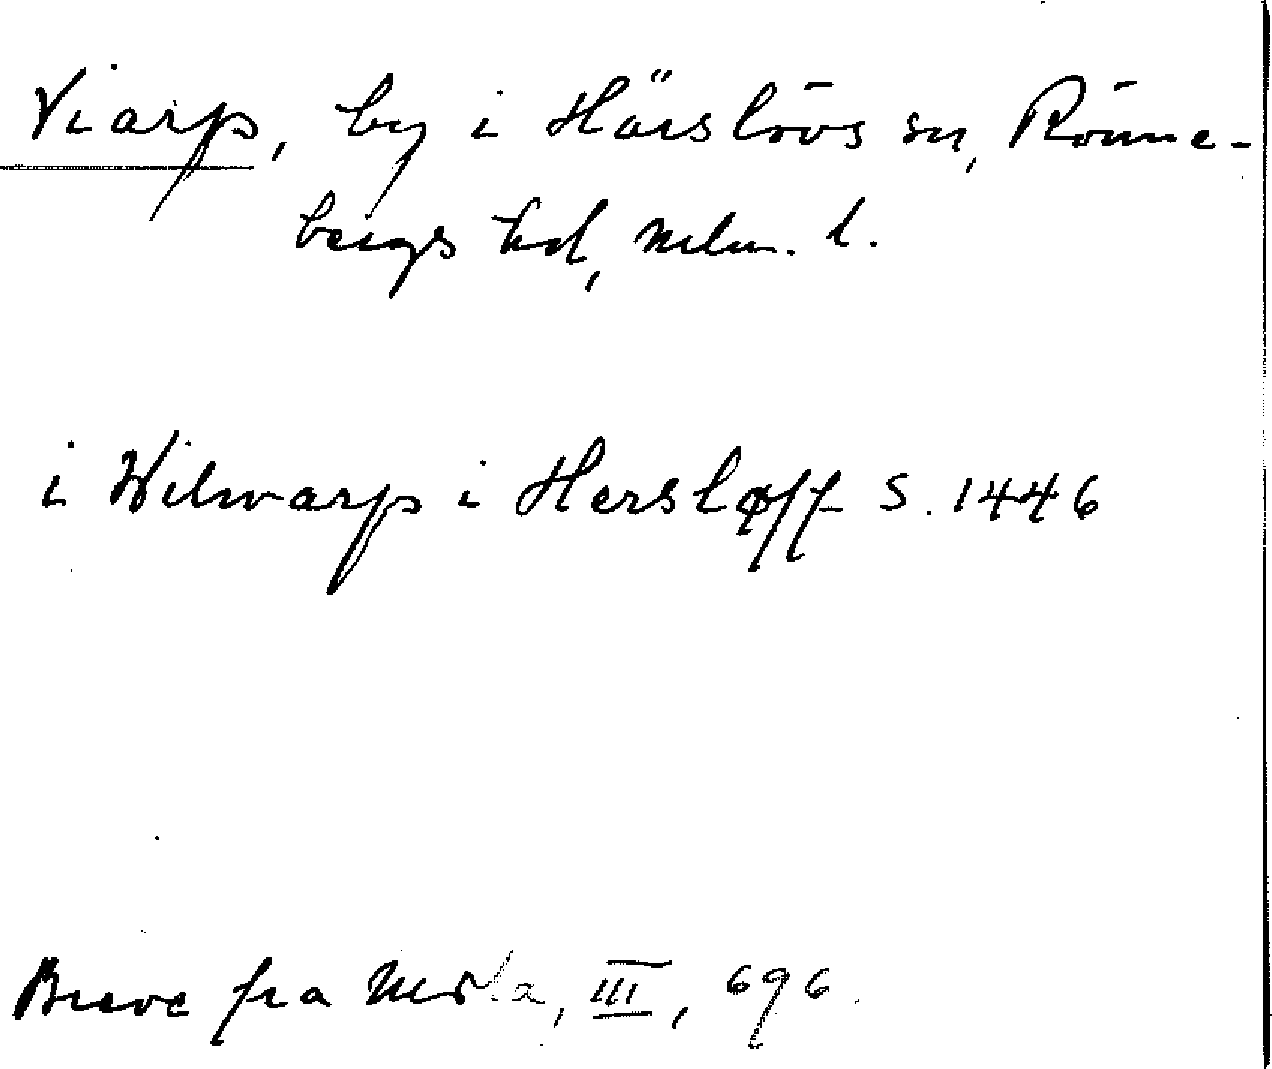 Viarp, by i Härslövs sn, Rönne-
bergs hd, Mlm. l.
i Wilwarp i Hersløff S. 1446
Breve fra Mdla, III, 696.